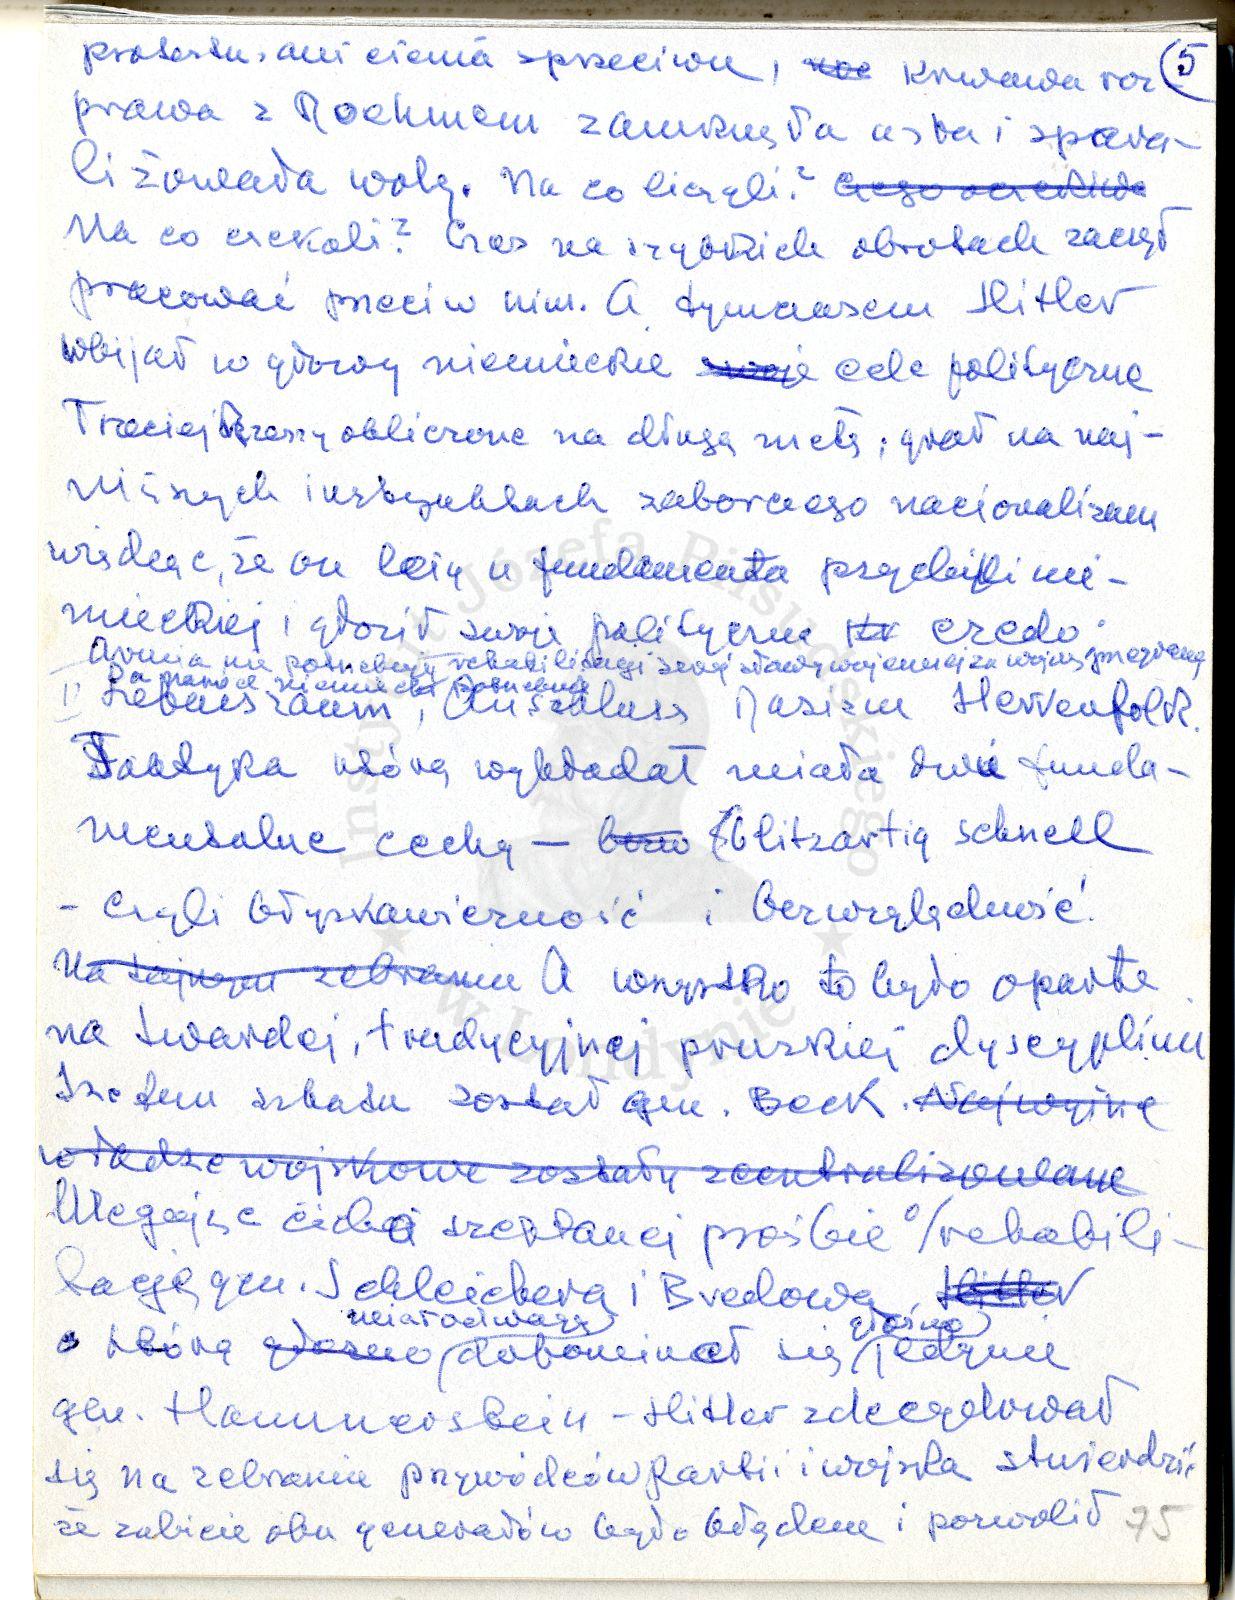 5
protestu, ani cienia sprzeciwu, krwawa roz-
prawa z Roehmem zamknęła usta i spara-
liżowała wolę. Na co liczyli?
Na co czekali? Czas na szybkich obrotach zaczął
pracować przeciw nim. A tymczasem Hitler
wbijał w głowy niemieckie swoje cele polityczne
Trzeciej Rzeszy obliczone na długą metę; grał na naj-
niższych instynktach zaborczego nacjonalizmu
wiedząc, że on leży u fundamentu psychiki nie-
mieckiej i głosił swoje polityczne credo.
Armia nie potrzebuje rehabilitacji swej sławy wojennej za wojnę przegraną
a naród niemiecki potrzebuje
Lebensraum, Anschluss Rasizm Herrenfolk.
Taktyka którą wykładał miała dwie funda-
mentalne cechy — blitzartig schnell
- czyli błyskawiczność i bezwzględność.
Na tajnym zebraniu A wszystko to było oparte
na twardej, tradycyjnej pruskiej dyscyplinie
Szefem sztabu został gen. Beck. Najwyższe
władze wojskowe zostały scentralizowane
Ulegając cichej szeptanej prośbie o rehabili-
tację gen. Schleichera i Bredowa, Hitler
miał odwagę głośno
o którą głosno dopominał się jedynie
gen. Hammerstein - Hitler zdecydował
się na zebraniu przywódców Partii i wojska stwierdzić
że zabicie obu generałów było błędem i pozwolił
75
Instytut Józefa Piłsudskiego
w Londynie